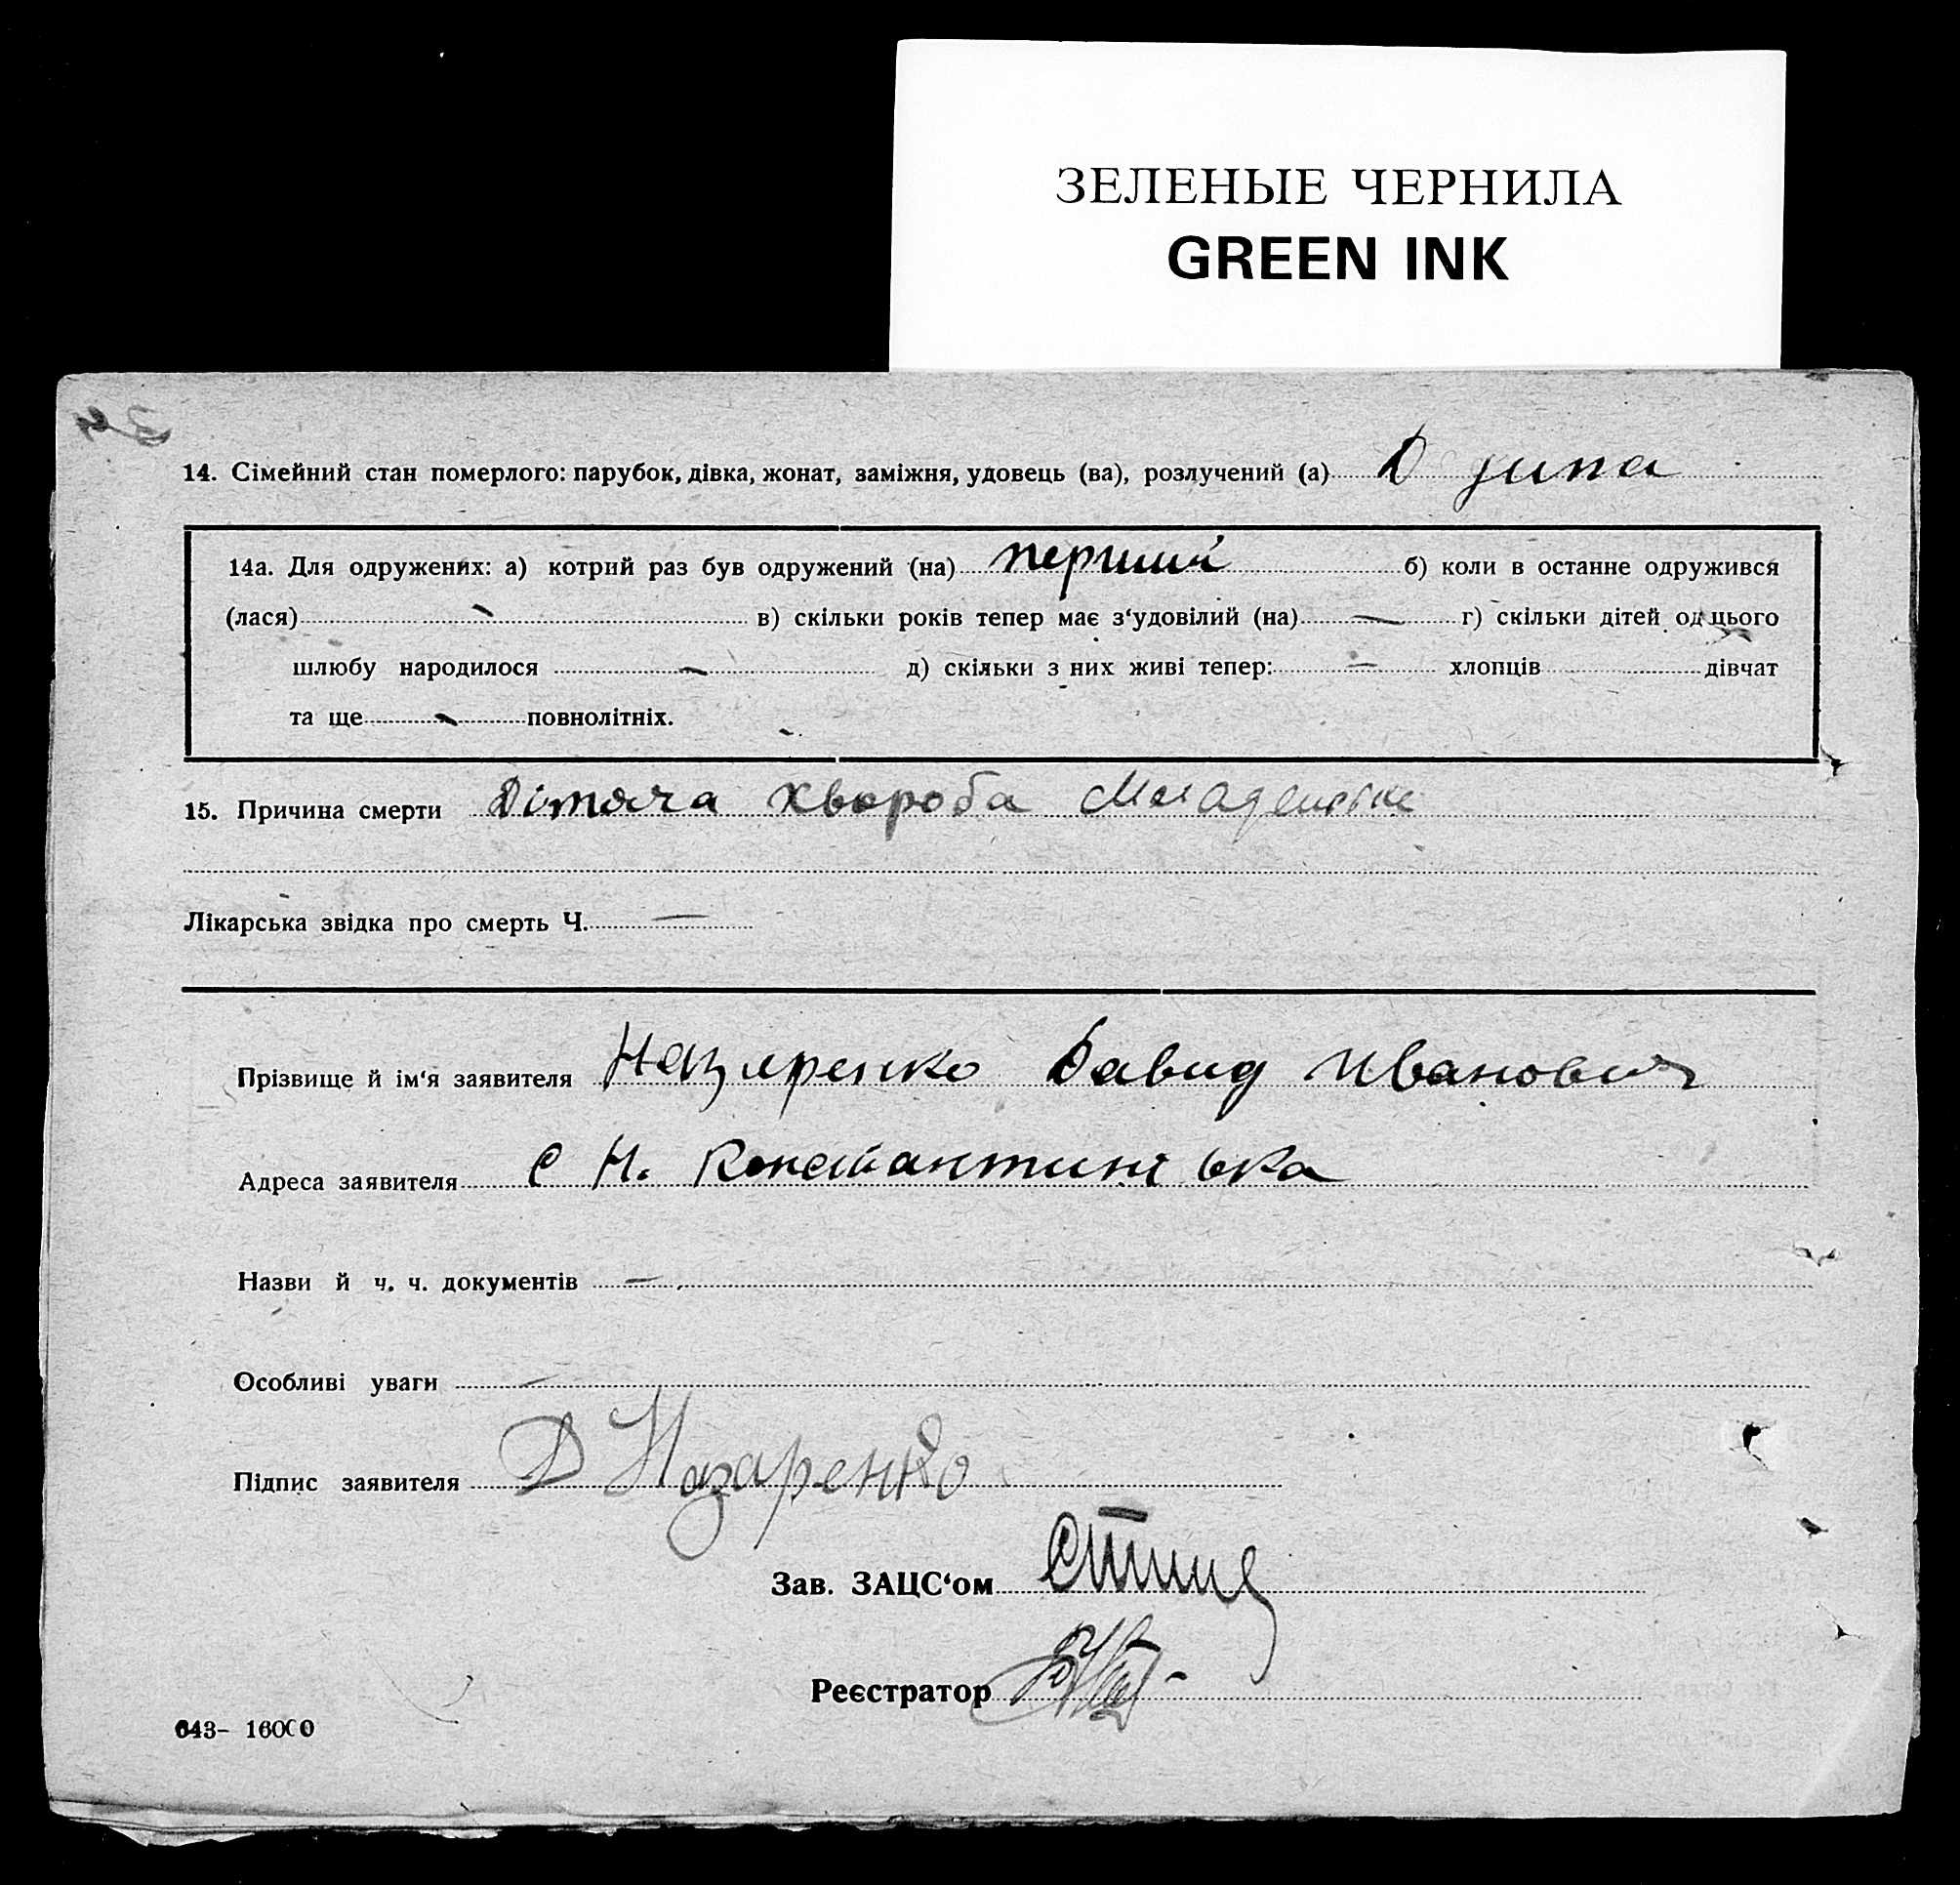 ЗЕЛЕНЫЕ ЧЕРНИЛА
GREEN INK
14. Сімейний стан померлого: парубок, дівка, жонат, заміжня, удовець (ва), розлучений (а)
14а. Для одружених: а) котрий раз був одружений (на) перший б) коли в останне одружився
(лася) — в) скільки років тепер має з‘удовілий (на) — г) скільки дітей од цього
шлюбу народилося — д) скільки з них живі тепер: — хлопців дівчат
та ще — повнолітніх.
15. Причина смерти Дітяча хвороба
Лікарська звідка про смерть Ч. —
Прізвище й ім‘я заявителя Назаренко Давид Иванович
Адреса заявителя с Н. Константинівка
Назви й ч. ч. документів —
Особливі уваги —
Підпис заявителя Д Назаренко
Зав. ЗАЦС‘ом
Реєстратор
643— 16000